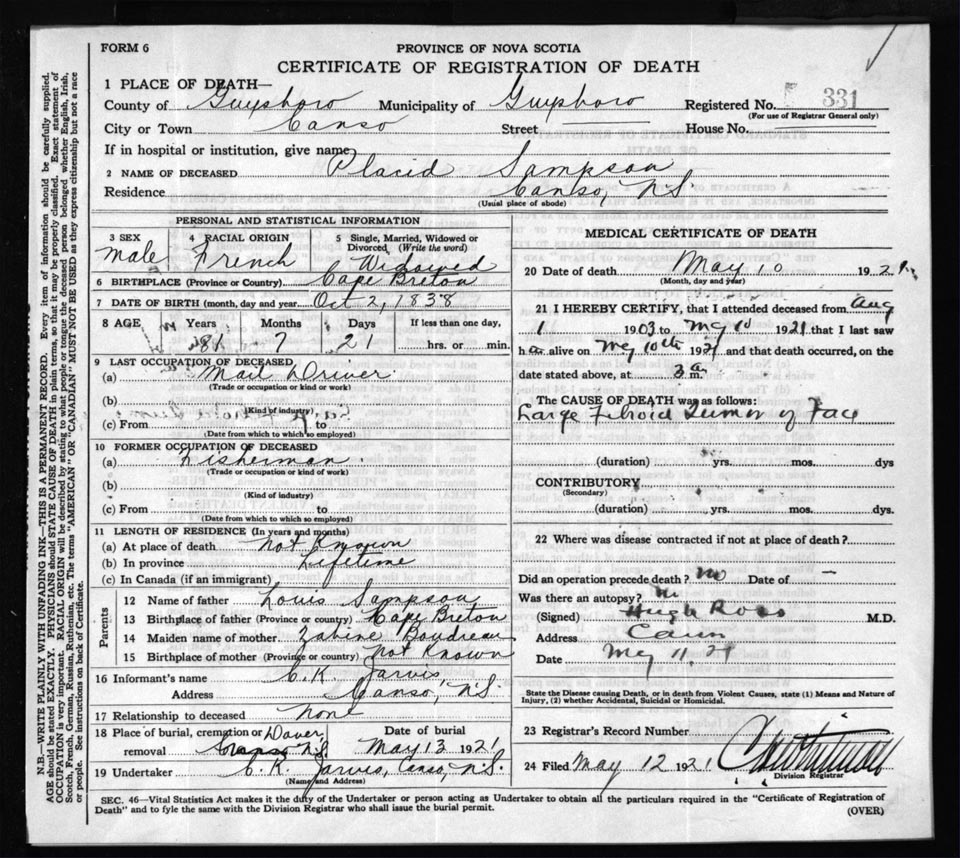 FORM 6
PROVINCE OF NOVA SCOTIA
CERTIFICATE OF REGISTRATION OF DEATH
1 PLACE OF DEATH—
County of Guysboro Municipality of Guysboro Registered No. 331
(For use of Registrar General only)
City or Town Canso Street House No.
If in hospital or institution, give name
2 NAME OF DECEASED Placid Sampson
Residence Canso, N.S.
(Usual place of abode)
PERSONAL AND STATISTICAL INFORMATION
3 SEX Male
4 RACIAL ORIGIN French
5 Single, Married, Widowed or Divorced (Write the word) Widowed
6 BIRTHPLACE (Province or Country) Cape Breton
7 DATE OF BIRTH (month, day and year) Oct 2, 1838
8 AGE Years Months Days If less than one day,
81 7 21 hrs. or min.
9 LAST OCCUPATION OF DECEASED
(a) Mail Driver
(Trade or occupation or kind of work)
(b)
(Kind of industry)
(c) From to
(Date from which to which so employed)
10 FORMER OCCUPATION OF DECEASED
(a) Fisherman
(Trade or occupation or kind of work)
(b)
(Kind of industry)
(c) From to
(Date from which to which so employed)
11 LENGTH OF RESIDENCE (In years and months)
(a) At place of death Not Known
(b) In province Lifetime
(c) In Canada (if an immigrant)
Parents
12 Name of father Louis Sampson
13 Birthplace of father (Province or country) Cape Breton
14 Maiden name of mother Zabine Boudreau
15 Birthplace of mother (Province or country) Not Known
16 Informant's name C. R. Jarvis
Address Canso, N.S.
17 Relationship to deceased None
18 Place of burial, cremation or removal N.S. Date of burial May 13 1921
19 Undertaker C. R. Jarvis, Canso, N.S.
(Name and Address)
MEDICAL CERTIFICATE OF DEATH
20 Date of death May 10 1921
(Month, day and year)
21 I HEREBY CERTIFY, that I attended deceased from Aug
1 1903 to May 10 1921 that I last saw
h alive on May 10th 1921 and that death occurred, on the
date stated above, at 3 a m.
The CAUSE OF DEATH was as follows:
Large Fibroid Tumor of Face
(duration) yrs. mos. dys
CONTRIBUTORY
(Secondary)
(duration) yrs. mos. dys.
22 Where was disease contracted if not at place of death?
Did an operation precede death? no Date of
Was there an autopsy? no
(Signed) Hugh Ross M.D.
Address Canso
Date May 11. 21
State the Disease causing Death, or in death from Violent Causes, state (1) Means and Nature of Injury, (2) whether Accidental, Suicidal or Homicidal.
23 Registrar's Record Number
24 Filed May 12 1921
Division Registrar
SEC. 46—Vital Statistics Act makes it the duty of the Undertaker or person acting as Undertaker to obtain all the particulars required in the "Certificate of Registration of
Death" and to fyle the same with the Division Registrar who shall issue the burial permit.
(OVER)
N.B.—WRITE PLAINLY WITH UNFADING INK—THIS IS A PERMANENT RECORD. Every item of information should be carefully supplied.
AGE should be stated EXACTLY. PHYSICIANS should STATE CAUSE OF DEATH in plain terms, so that it may be properly classified. Exact statement of
OCCUPATION is very important. RACIAL ORIGIN will be described by stating to what people or tongue the deceased person belonged whether English, Irish,
Scotch, French, German, Russian, Ruthenian, etc. The terms "AMERICAN" OR "CANADIAN" MUST NOT BE USED as they express citizenship but not a race
or people. See instructions on back of Certificate.